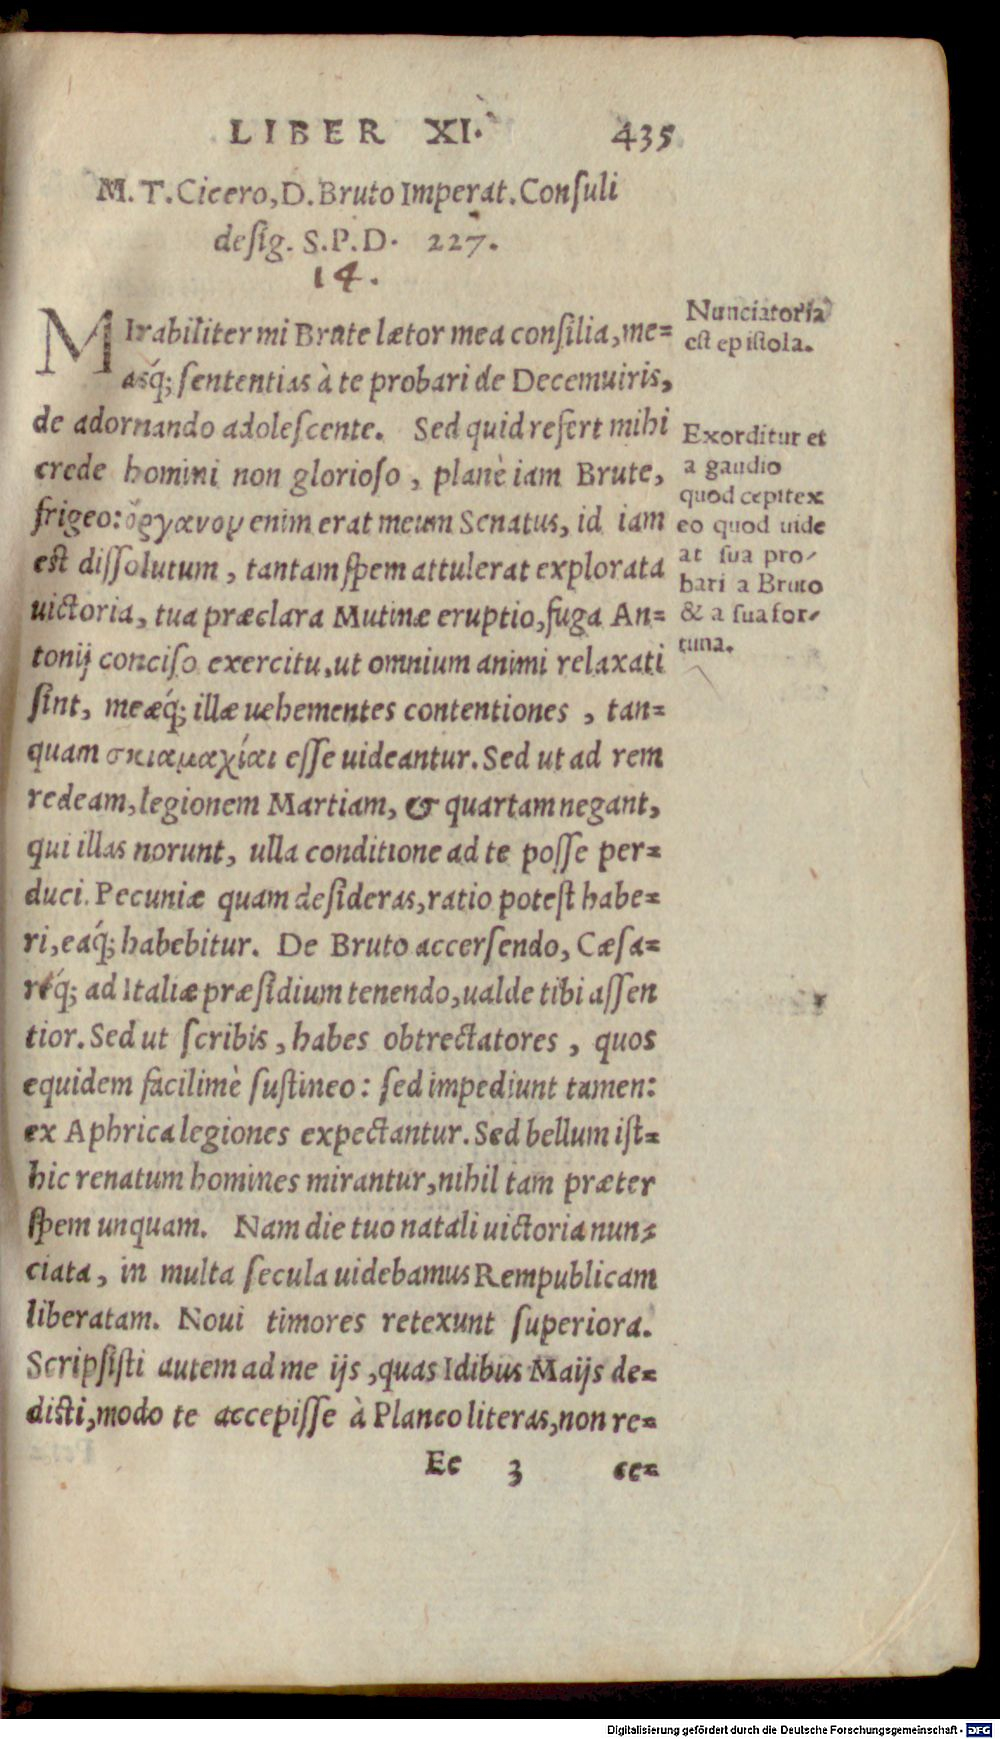 LIBER XI. 435
M. T. Cicero, D. Bruto Imperat. Consuli
desig. S. P. D. 227.
14.
MIrabiliter mi Brute lætor mea consilia, me=
asq́; sententias à te probari de Decemuiris,
de adornando adolescente. Sed quid refert mihi
crede homini non glorioso, planè iam Brute,
frigeo: ὄργανον enim erat meum Senatus, id iam
est dissolutum, tantam spem attulerat explorata
uictoria, tua præclara Mutinæ eruptio, fuga An=
tonij conciso exercitu, ut omnium animi relaxati
sint, meæq́; illæ uehementes contentiones, tan=
quam σκιαμαχίαι esse uideantur. Sed ut ad rem
redeam, legionem Martiam, & quartam negant,
qui illas norunt, ulla conditione ad te posse per=
duci. Pecuniæ quam desideras, ratio potest habe=
ri, eaq́; habebitur. De Bruto accersendo, Cæsa=
req́; ad Italiæ præsidium tenendo, ualde tibi assen
tior. Sed ut scribis, habes obtrectatores, quos
equidem facilimè sustineo: sed impediunt tamen:
ex Aphrica legiones expectantur. Sed bellum ist=
hic renatum homines mirantur, nihil tam præter
spem unquam. Nam die tuo natali uictoria nun=
ciata, in multa secula uidebamus Rempublicam
liberatam. Noui timores retexunt superiora.
Scripsisti autem ad me ijs, quas Idibus Maijs de=
disti, modo te accepisse à Planco literas, non re=
Ee 3 ce=
Nunciatoria
est epistola.
Exorditur et
a gaudio
quod cepit ex
eo quod uide
at sua pro-
bari a Bruto
& a sua for-
tuna.
Digitalisierung gefördert durch die Deutsche Forschungsgemeinschaft - DFG